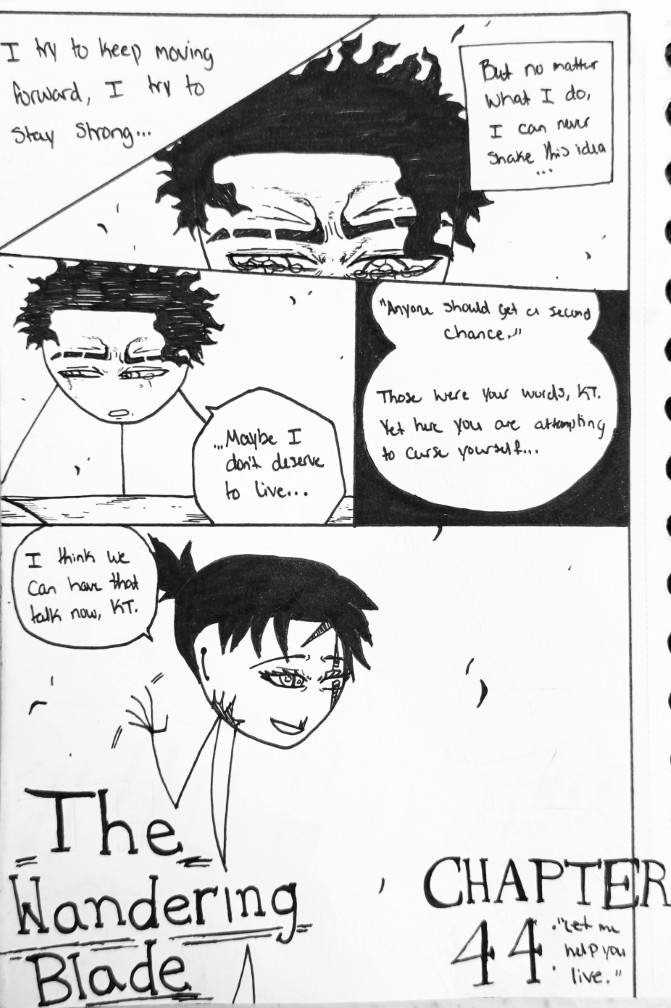 I try to keep moving
forward, I try to
stay strong...
But no matter
what I do,
I can never
shake this idea
...
"Anyone should get a second
chance."
Those were your words, KT.
Yet here you are attempting
to curse yourself...
...Maybe I
don't deserve
to live...
I think we
can have that
talk now, KT.
The
Wandering
Blade
CHAPTER
44
"Let me
help you
live."